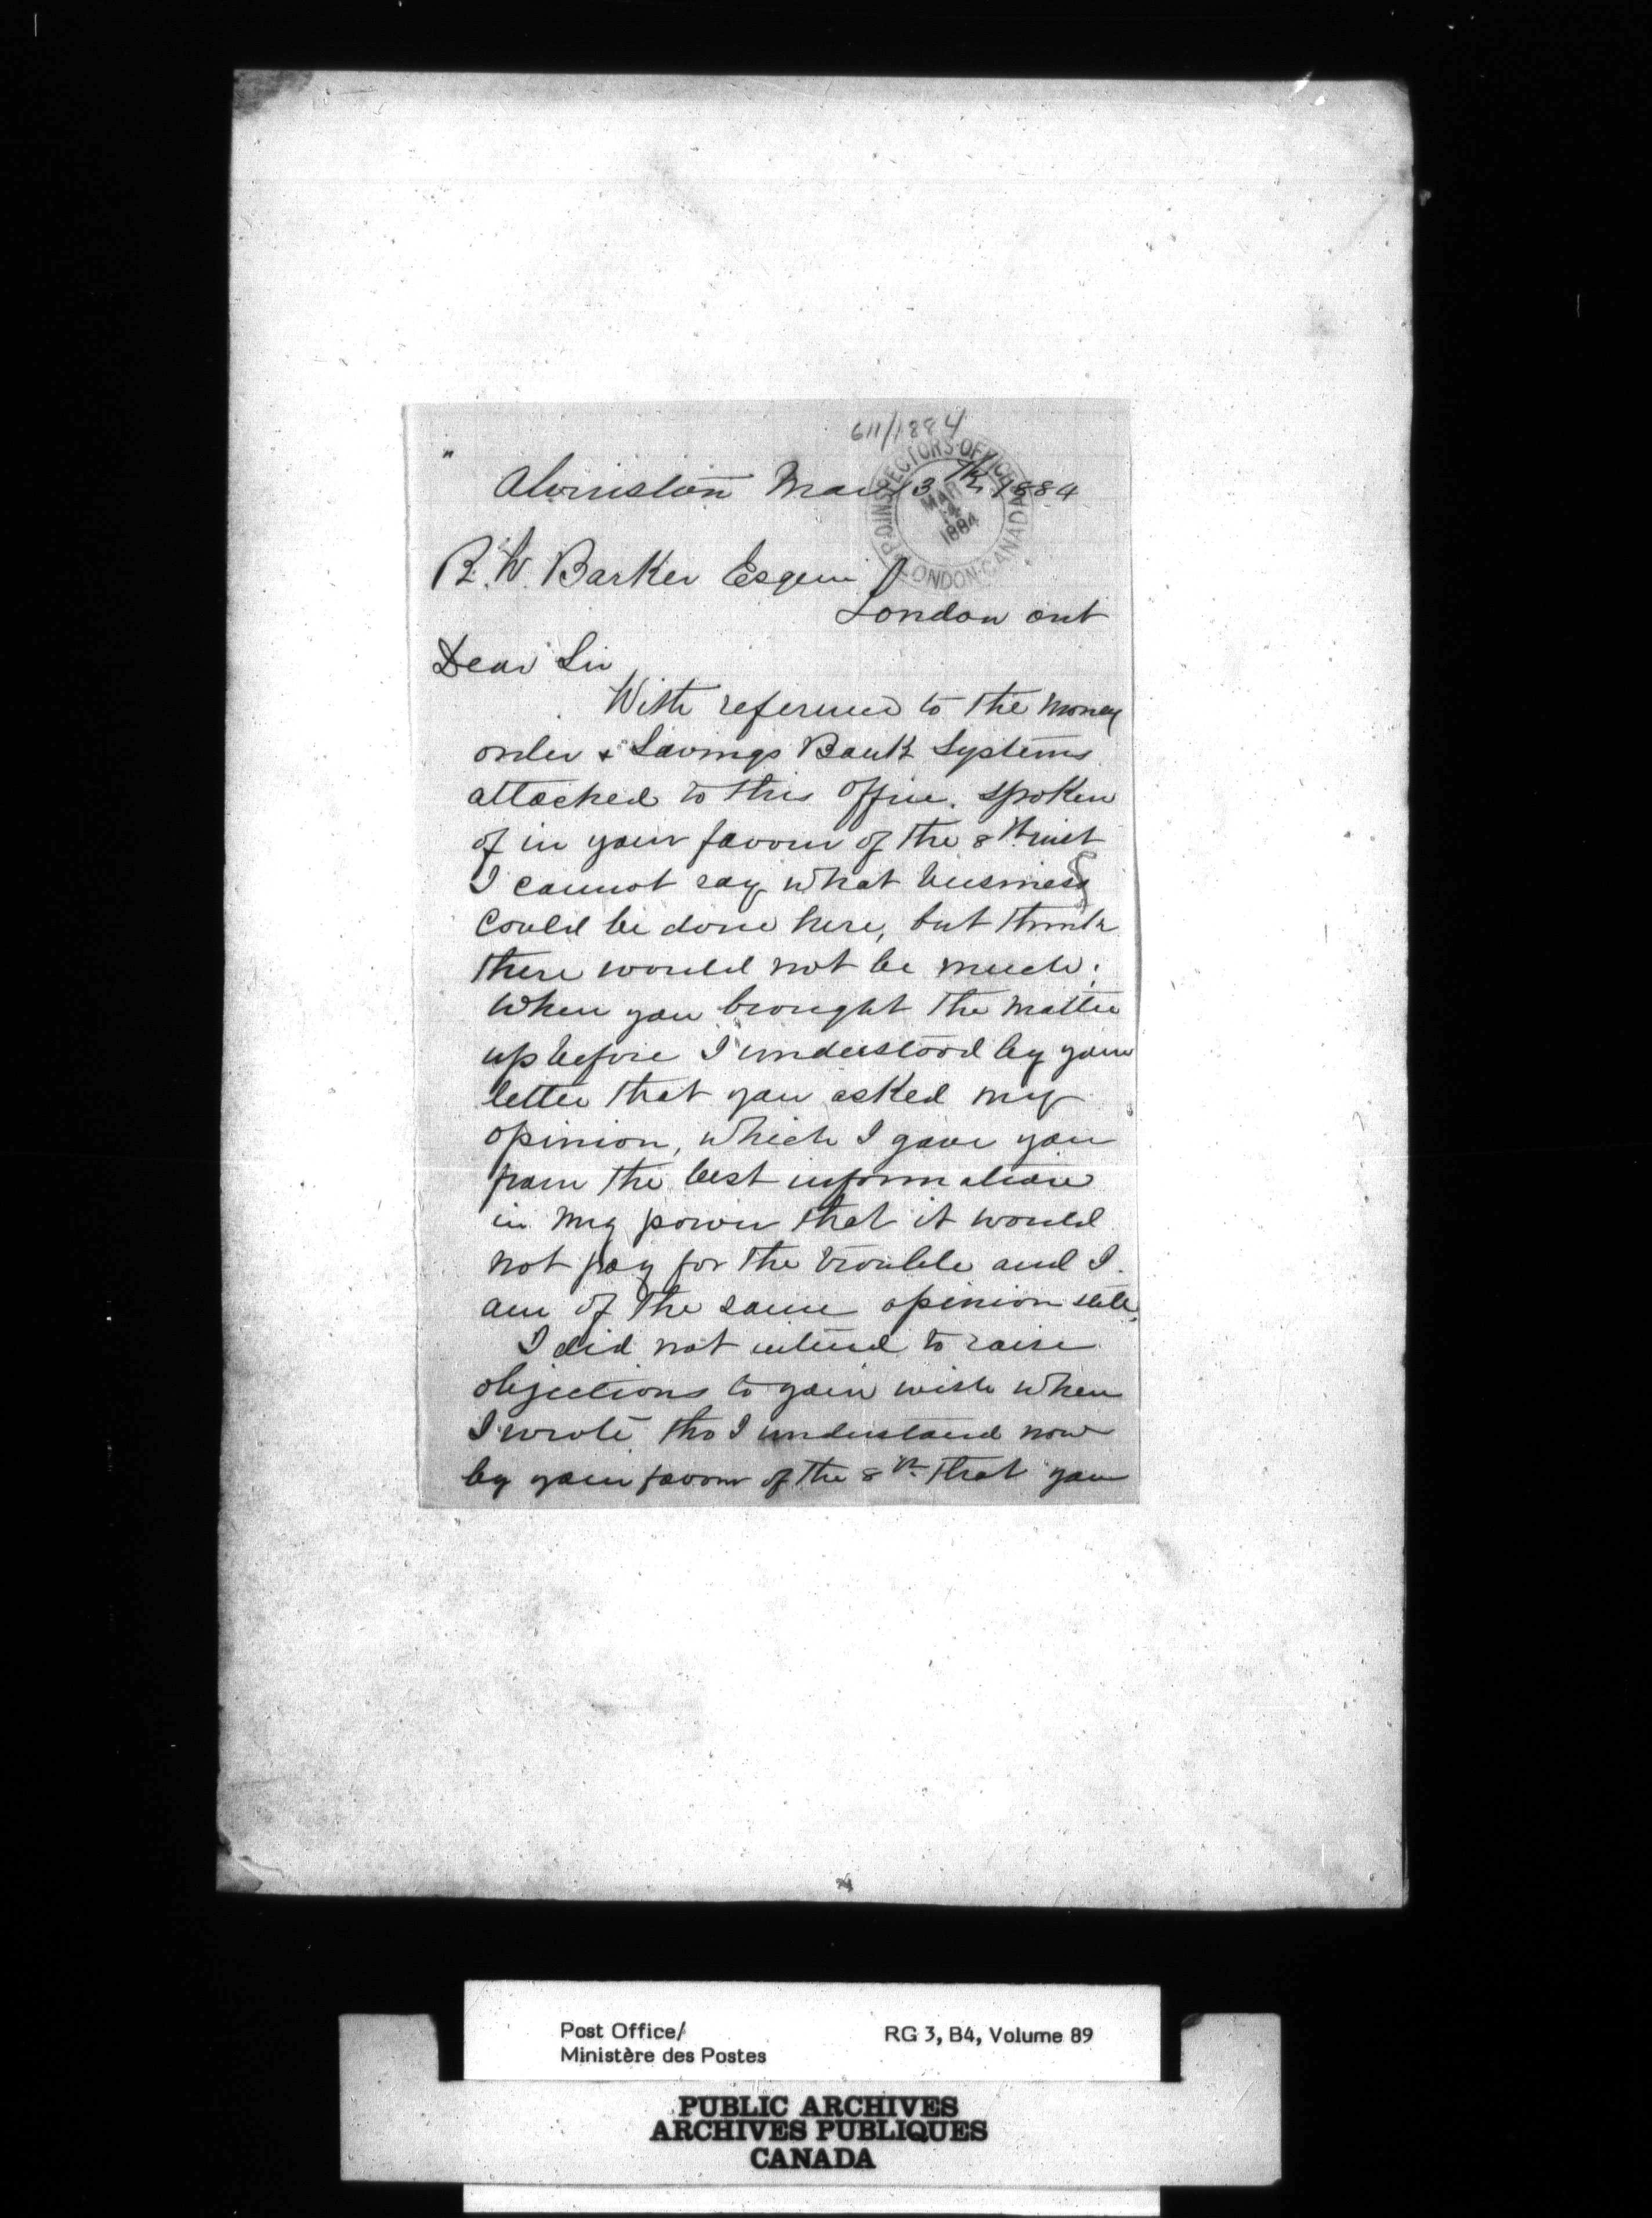 611/1884
Alvinston Mar 13th 1884
P.O. INSPECTORS OFFICE
MAR
14
1884
LONDON-CANADA
R. W. Barker Esquire
London Ont
Dear Sir
With reference to the money
order & Savings Bank Systems
attached to this office. spoken
of in your favour of the 8th inst
I cannot say what business
could be done here, but think
there would not be much.
When you brought the matter
up before I understood by your
letter that you asked my
opinion, which I gave you
from the best information
in my power that it would
not pay for the trouble and I
am of the same opinion still.
I did not intend to raise
objections to your wish when
I wrote tho I understand now
by your favour of the 8th that you
Post Office/
Ministère des Postes
RG 3, B4, Volume 89
PUBLIC ARCHIVES
ARCHIVES PUBLIQUES
CANADA